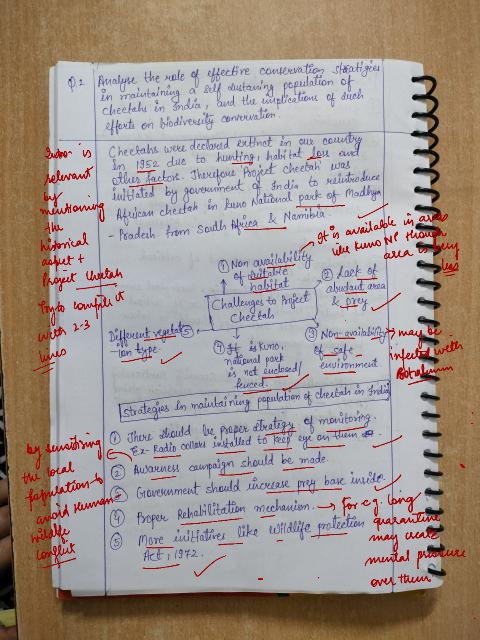 Q.2 Analyse the role of effective conservation stratigies
in maintaining a self sustaining population of
cheetahs in India, and the implications of such
efforts on biodiversity conservation.
Cheetahs were declared extinct in our country
in 1952 due to hunting, habitat loss and
other factors. Therefore 'Project cheetah' was
initiated by government of India to reintroduce
African cheetah in Kuno National park of Madhya
-Pradesh from South Africa & Namibia.
Intro is
relevant
by
mentioning
the
historical
aspect +
Project Cheetah
Try to complete it
with 2-3
lines
① Non availability
of suitable
habitat
It is available in areas
like Kuno NP though
area is very
less
② Lack of
abudant area
& prey
Challenges to Project
Cheetah
Different vegetat ⑤
ion type.
④ It is Kuno,
national park
is not enclosed/
fenced.
③ Non-availability
of safe
environment.
may be
infected with
Strategies in maintaining population of cheetah in India
① There should be proper strategy of monitoring.
Ex- Radio collars installed to keep eye on them.
② Awareness campaign should be made.
③ Government should increase prey base inside.
④ Proper Rehabilitation mechanism.
⑤ More initiatives like wildlife protection
Act, 1972.
by sensitising
the local
population to
avoid human
wildlife
conflict
For e.g. long
quarantine
may create
mental pressure
over them